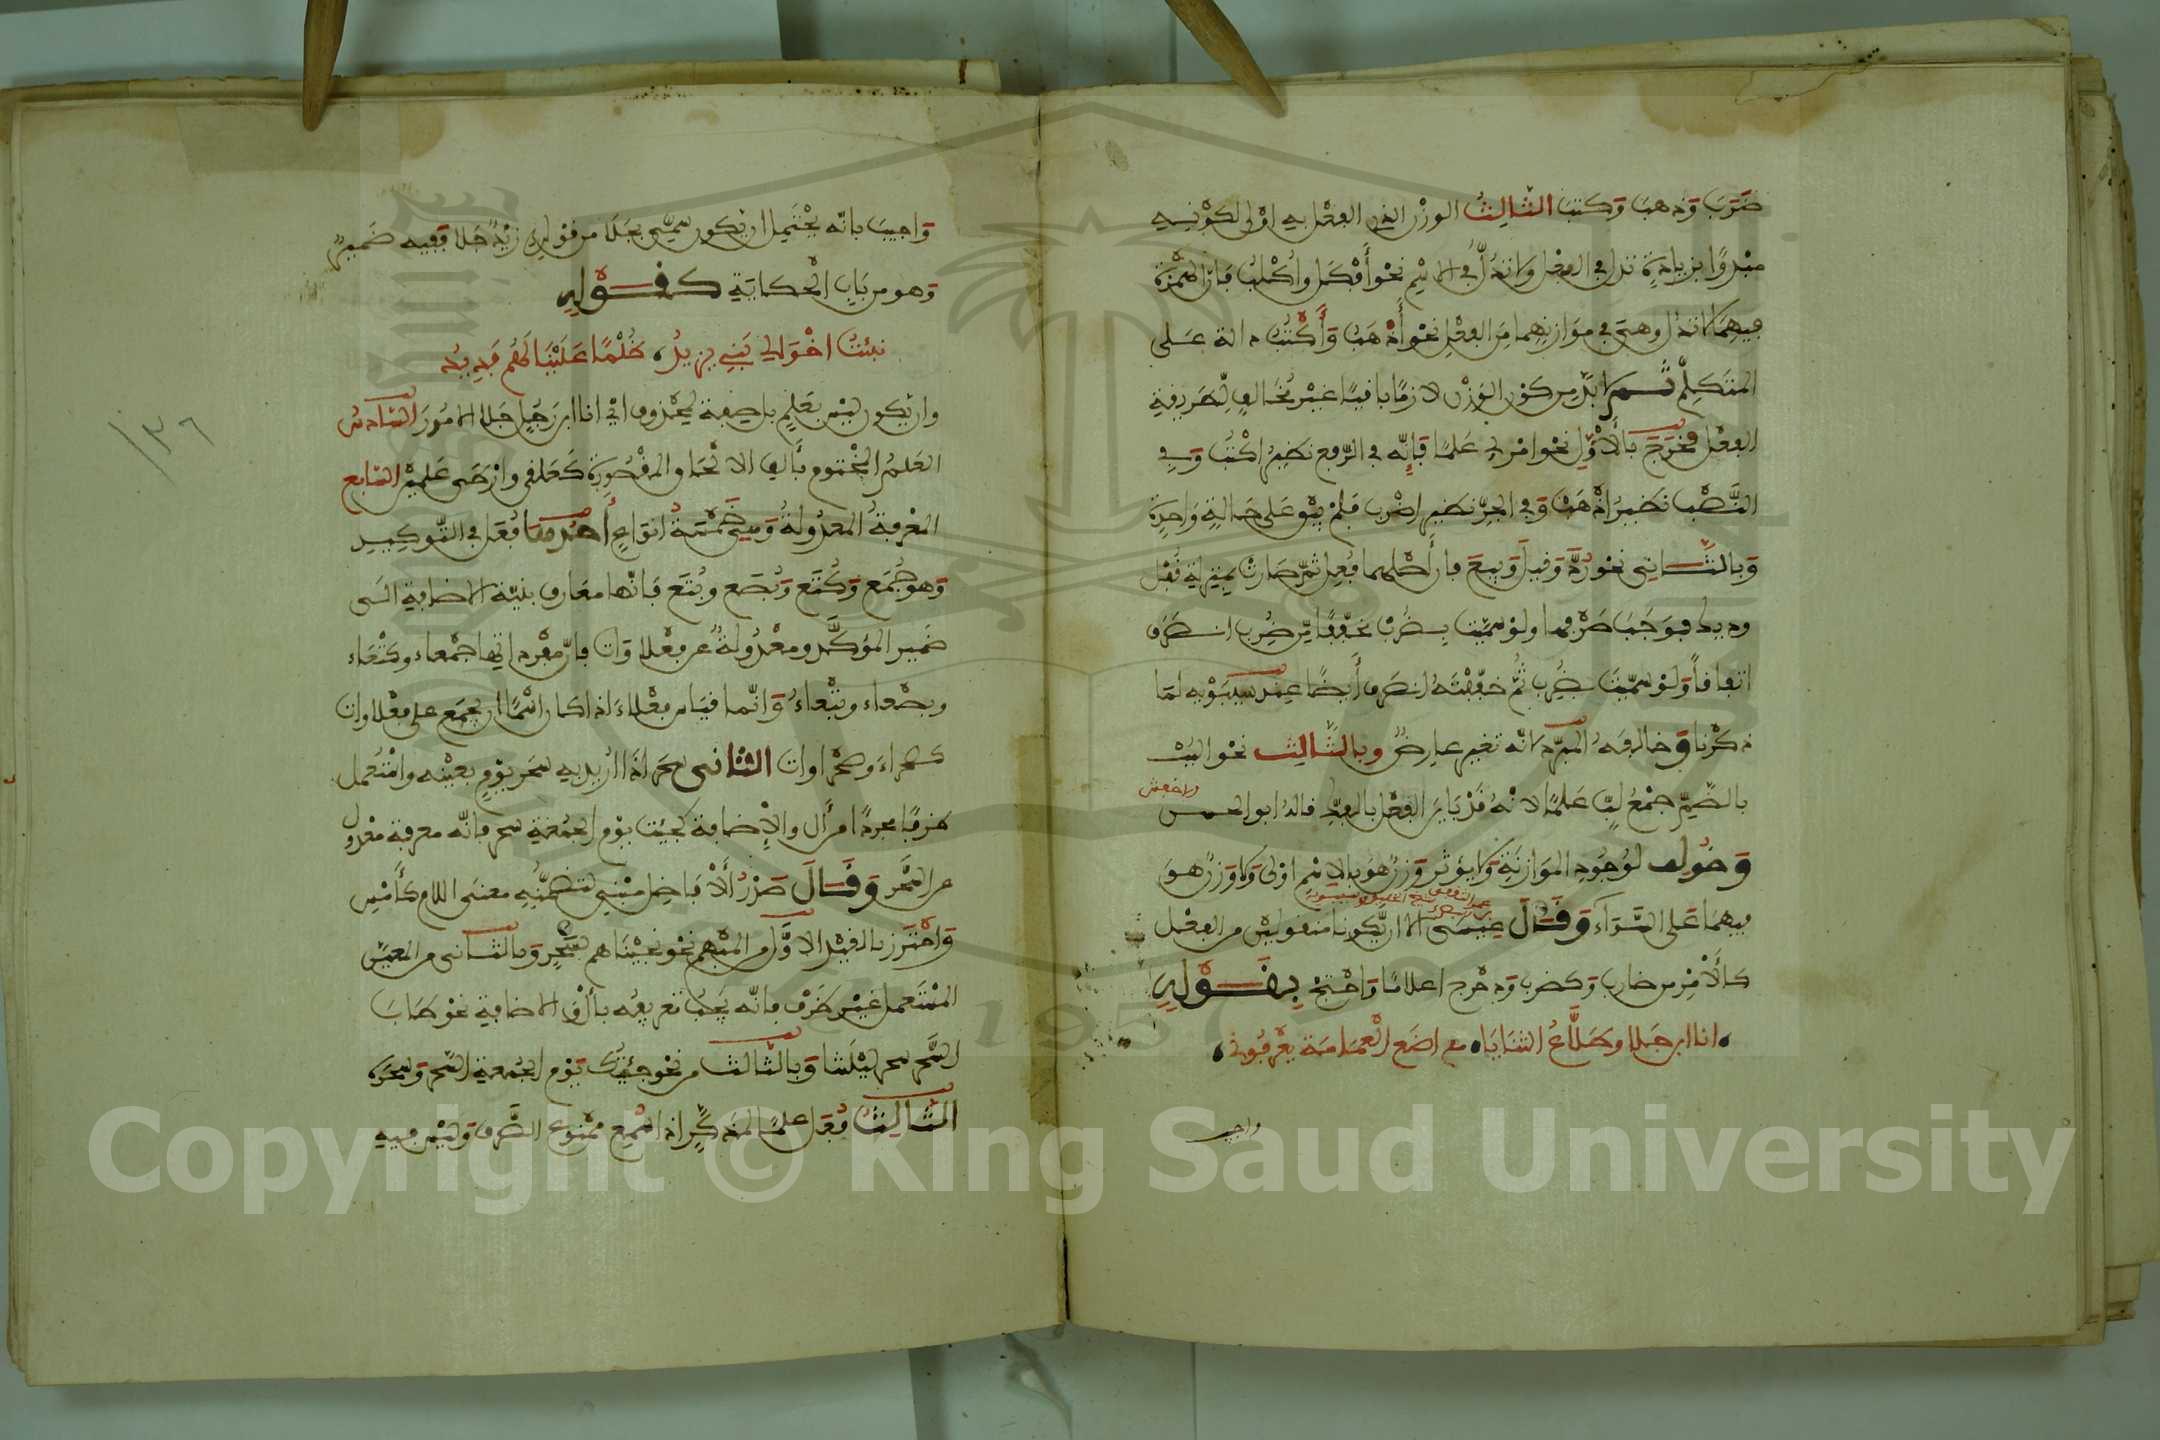 ضَرَبَ وَذهبَ وَكتبَ الثالِثُ الوزْن الذي الفعْل به اوْلى لكوْنـه
مبْدوًا بزيادةٍ تدل في الفعل ولا تدُلُّ في الاسْمِ نحْو أَفْكَل وأكْلُب فانّ الهمْزة
فيهِمَا لا تدُل وهي في مَوَازِنِهما مِنَ الفِعْلِ نحْو أَذْهَبُ وَأَكْتُبُ دالة عَـلى
المتَكلِّم ثـم لا بدّ مِن كوْن الوَزْن لازمًا باقيًا غيْر مُخَالفٍ لطَريقةِ
الفِعْل فخَرَجَ بالأوَّلِ نحْو امْرئ عَلمًا فَإِنّه في الرّفع نظيرُ اكْتُبْ وَفي
النَّصْب نظيرُ اذْهَبْ وَفي الجرّ نظير اضْرب فلمْ يبْق على حَالةٍ وَاحِدَةٍ
وَبالثّـانِي نحْو رُدَّ وَقيلَ وَبيعَ فان أَصْلهما فُعِل ثمّ صَارَتْ بمنزلة قُفْل
وديك فوَجَبَ صَرْفهما ولوْ سمّيْتَ بـضُرْبَ مخَفّفًا مِن ضُرِب انـصَرَف
اتفاقًا وَلوْ سمّيْتَ بضُرِب ثُمَّ خفّفْتَهُ انصَرف أَيضًا عِنْد سيبَوْيه لمَا
ذكرْنا وَخالفَهُ المبَرّد لانه تغيير عارضٌ وبالثَّالِث نحْو البُـب
بالضَّمّ جمْعُ لبٍّ عَلمًا لانهُ قدْ بَايَنَ الفِعْل بالفكّ قالهُ ابو الحسن
والاخفش
وَخُولِف لوُجُودِ الموَازنَةِ وَلا يؤثر وَزنٌ هوَ بالاِسْمِ اوْلى وَلا وَزنٌ هـوَ
فيهمَا عَلى السَّوَاءِ وَقَـالَ عِيسَى الا ان يّكونا منقوليْن من الفِعْل
كالأَمْرِ من ضارب وَكضرب وَدحْرج اعلامًا وَاحْتجّ بِقَـوْلِهِ
انا ابن جَلا وطَلَّاعُ الثنَايَا متى اضَع العِمَامَة تَعْرفُوني
واجيب
وَاجيبَ بانّه يحْتَمِل ان يّكون سمّي بجَلا من قوْلِك زيْدٌ جَلا ففيه ضَمِيرٌ
وَهو من بَابِ الحكايَةِ كـقَـوْلِهِ
نبئتُ اخْوَالي بَني يزيدُ ظُلْمًا عَلَيْنَا لَهُمْ فَدِيدُ
وان يّكون ليْس بعَلمٍ بل صِفة لمحْذُوف اي انا ابن رَجُلٍ جَلا الامُورَ السَّادسُ
العَلمُ المخْتوم بأَلِف الالْحَاق المقْصُورَة كَعَلقى وارْطَى عَلميْن السَّابع
المعْرفةُ المعْدُولةُ وَهيَ خَمْسَةُ انوَاعٍ أَحَدُهَا فُعَل في التَّوكِيـد
وَهو جُمَع وَكُتَع وَبُصَع وَبُتَع فَانّها معَارِف بنيَّة الاضافةِ الـى
ضَمير المؤكَّد ومعْدُولةٌ عن فعْلاوَات فانّ مفْردَاتِها جمْعاء وكتْعَاء
وبصْعاء وبتْعاءُ وَانّما قيَاس فعْلاءَ اذا كان اسْمًا ان يّجمَع على فعْلاوات
كصحراءَ وصحْراوات الثَّاني سحَر اذا اُريد به سحَر يوْمٍ بعيْنِه واسْتُعمل
ظرفًا مجردًا من أَل والإِضافة كجئتُ يوْم الجمُعة سحر فانّه معرفة معْدُول
عن السَّحَر وَقَـالَ صَدْرُ الأَفَاضِل مبْني لتضمُّنِه معنى اللام كأَمْسِ
وَاحْترز بالقيْد الاوَّل من المبْهم نحو نجَّيْنَاهم بسَحَرٍ وَبالثـاني من المعيّن
المسْتعمل غيْر ظرْف فانّه يَجبُ تعْريفُه بأَلْ او الاضافةِ نحْو طَابَ
السَّحَر سحر ليْلَتنا وَبالثّالث من نحْو جئتُك يَوْم الجُمعة السَّحَر وَسحَره
الثَّالِثُ فُعَل علمًا لمذكرٍ اذا سُمِع ممْنوع الصَّرف وَليْس فيه
١٣٦
Copyright © King Saud University
1957